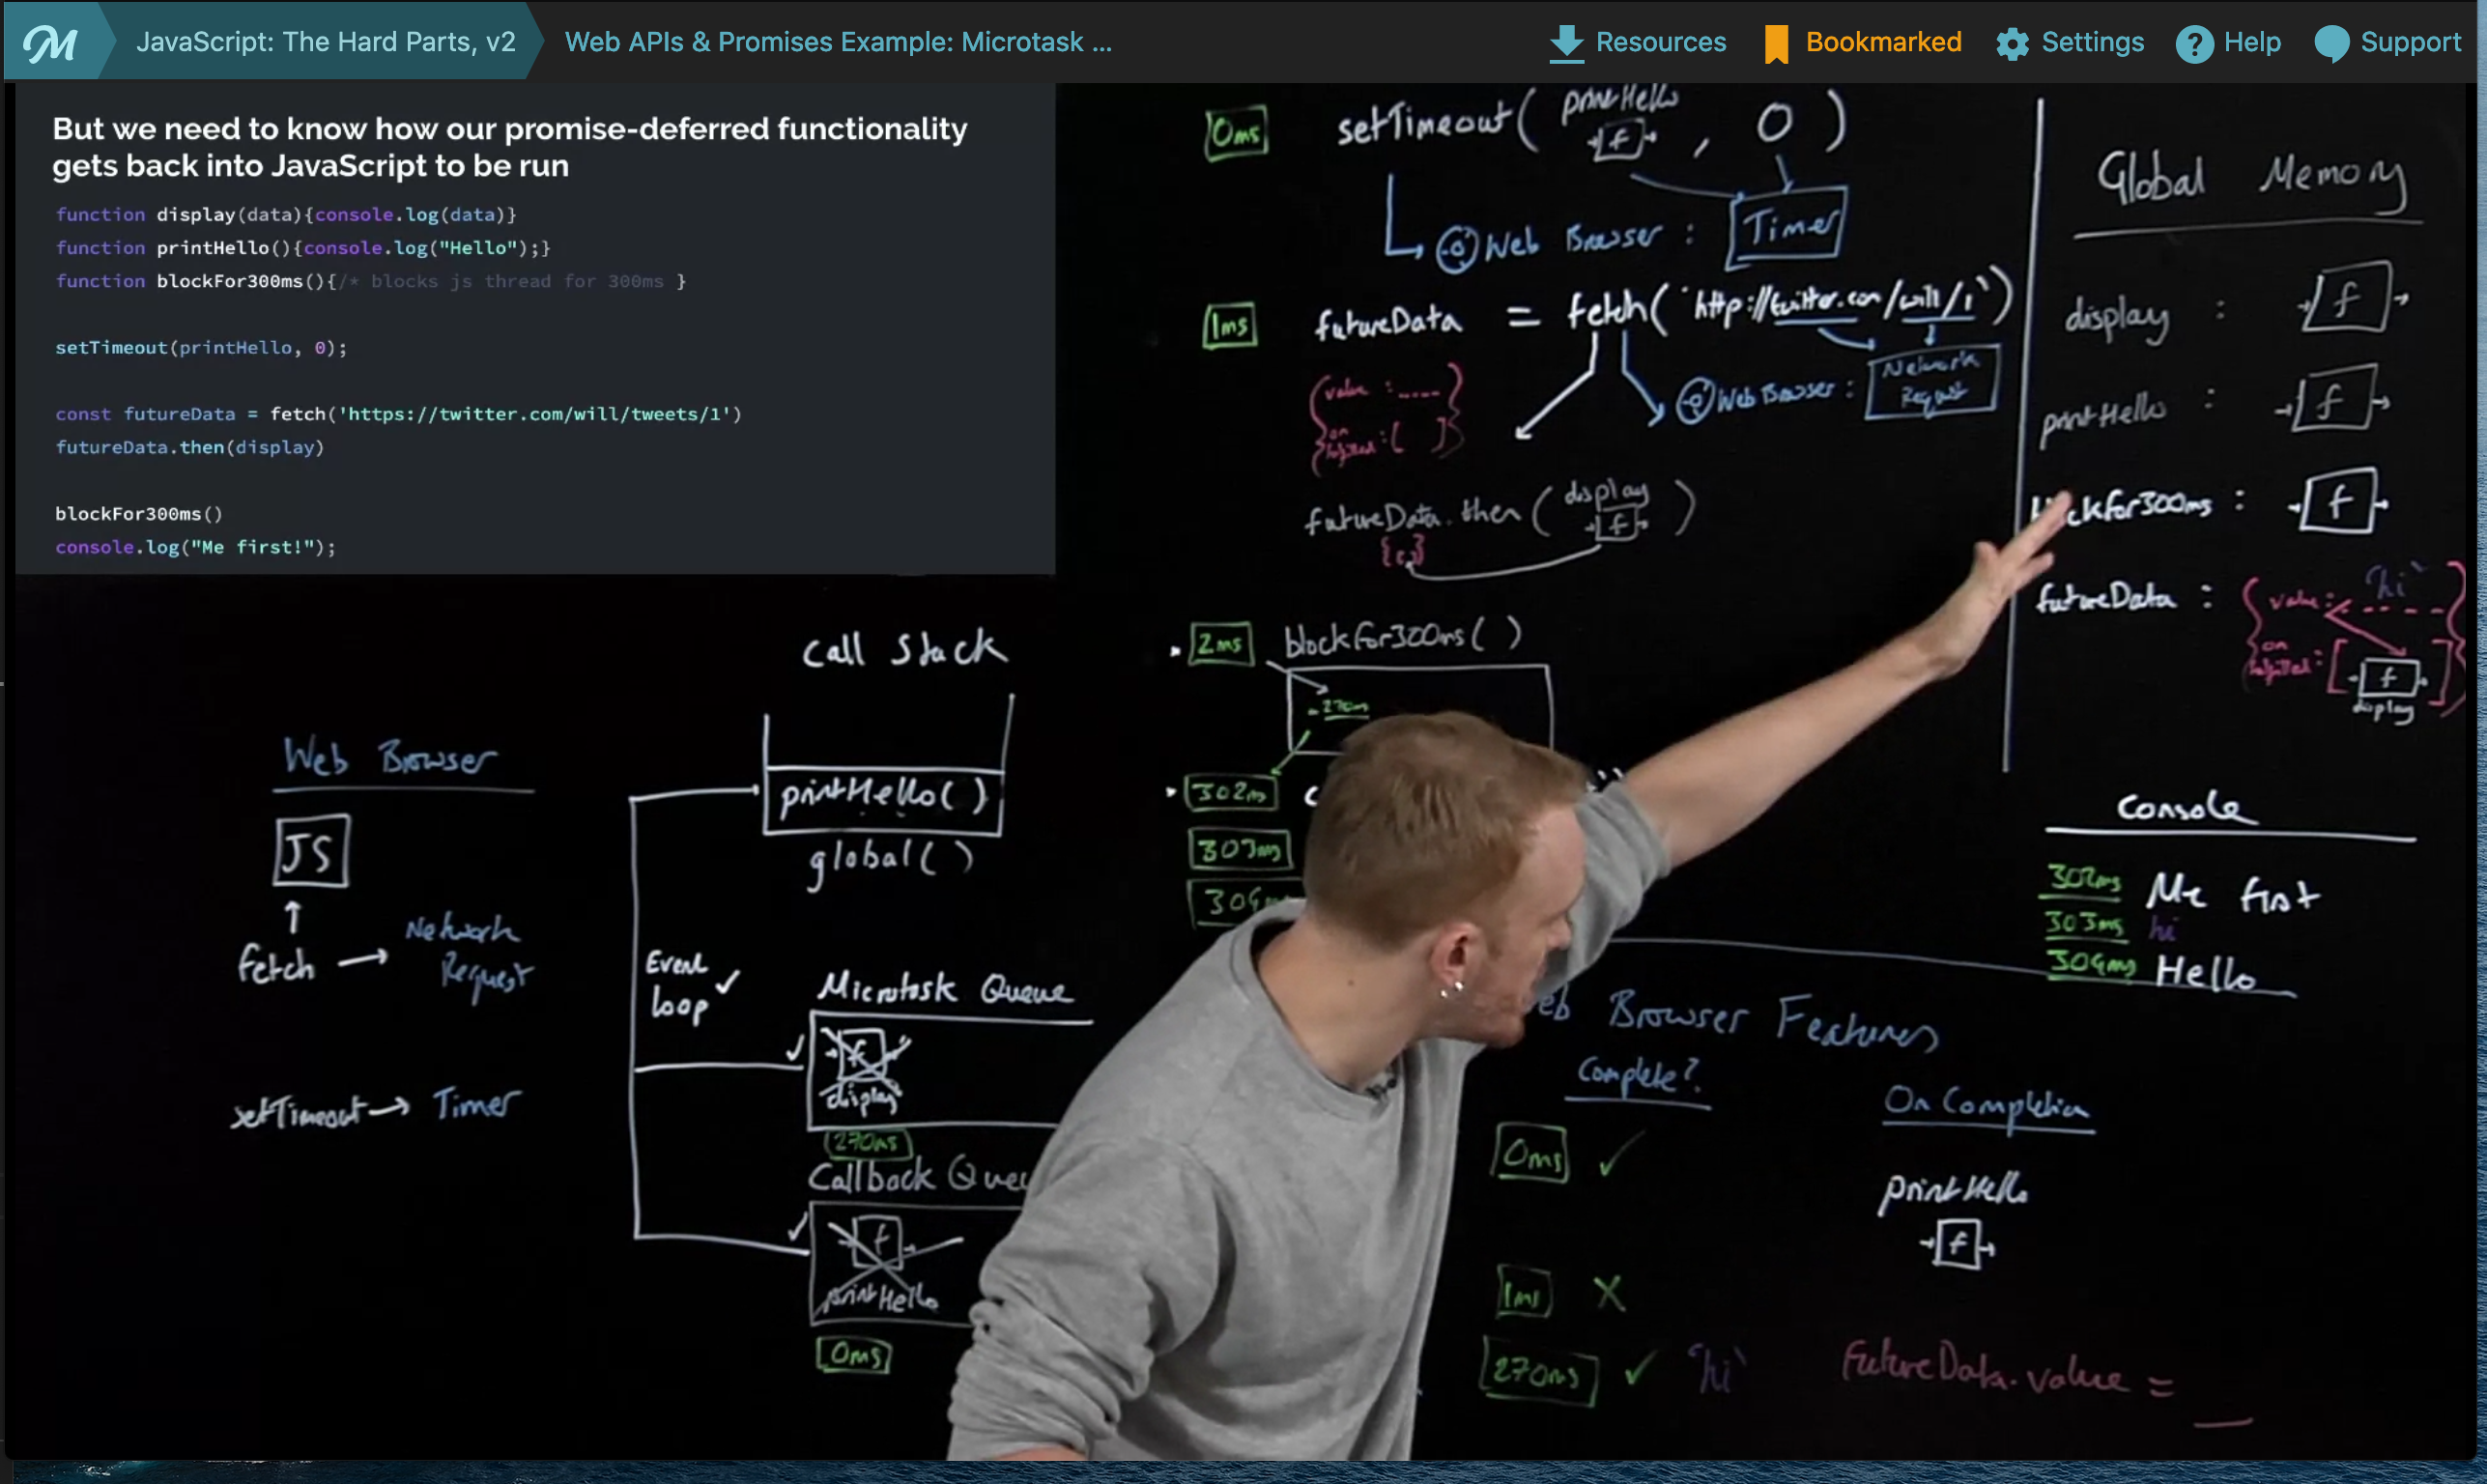 M
JavaScript: The Hard Parts, v2
Web APIs & Promises Example: Microtask ...
Resources
Bookmarked
Settings
? Help
Support
But we need to know how our promise-deferred functionality
gets back into JavaScript to be run
function display(data){console.log(data)}
function printHello(){console.log("Hello");}
function blockFor300ms(){/* blocks js thread for 300ms }
setTimeout(printHello, 0);
const futureData = fetch('https://twitter.com/will/tweets/1')
futureData.then(display)
blockFor300ms()
console.log("Me first!");
0ms setTimeout( printHello f , 0 )
Web Browser : Timer
1ms futureData = fetch('http://twitter.con/will/1')
value :
on fulfilled : [ ]
Web Browser : Network
Request
futureData.then( display f )
2ms blockFor300ms( )
270m
302m
303ms
304m
Global Memory
display : f
printHello : f
ckFor300ms : f
futureData : value : 'hi'
on fulfilled : [ f ]
display
Console
302ms Me first
303ms hi
304ms Hello
Call Stack
printHello( )
global( )
Web Browser
JS
fetch → Network
Request
setTimeout → Timer
Event
loop ✓
Microtask Queue
f
display
270ms
Callback Que
f
printHello
0ms
eb Browser Features
Complete?
On Completion
0ms ✓
printHello
f
1ms X
270ms ✓ 'hi' futureData.value = __